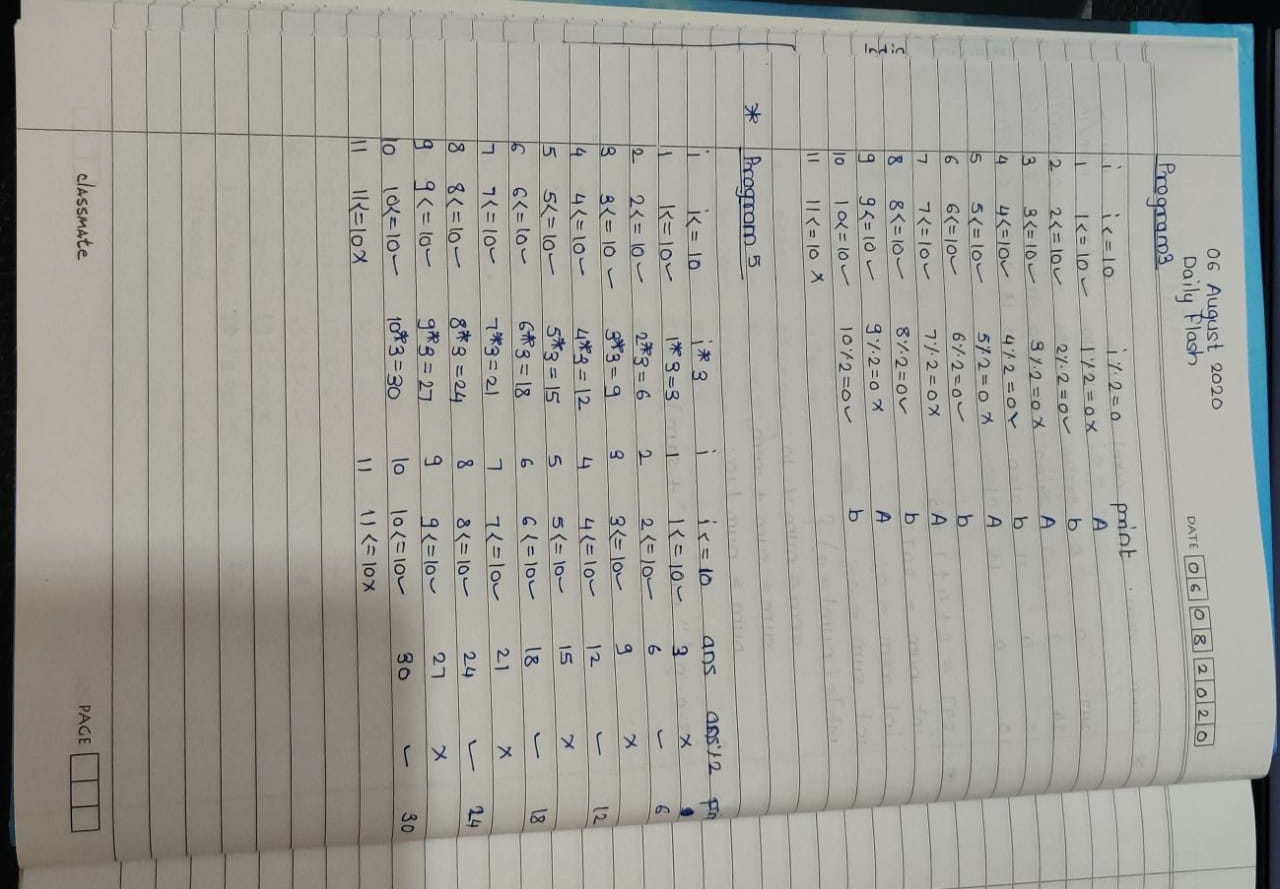 06 August 2020
Daily Flash
DATE 06082020
Program3
i i<=10 i%2=0 print
1 1<=10✓ 1%2=0x A
2 2<=10✓ 2%2=0✓ b
3 3<=10✓ 3%2=0x A
4 4<=10✓ 4%2=0✓ b
5 5<=10✓ 5%2=0x A
6 6<=10✓ 6%2=0✓ b
7 7<=10✓ 7%2=0x A
8 8<=10✓ 8%2=0✓ b
9 9<=10✓ 9%2=0x A
10 10<=10✓ 10%2=0✓ b
11 11<=10x
* Program 5
i i<=10 i*3 i i<=10 ans ans%2
1 1<=10✓ 1*3=3 1 1<=10✓ 3 x
2 2<=10✓ 2*3=6 2 2<=10✓ 6 ✓ 6
3 3<=10✓ 3*3=9 3 3<=10✓ 9 x
4 4<=10✓ 4*3=12 4 4<=10✓ 12 ✓ 12
5 5<=10✓ 5*3=15 5 5<=10✓ 15 x
6 6<=10✓ 6*3=18 6 6<=10✓ 18 ✓ 18
7 7<=10✓ 7*3=21 7 7<=10✓ 21 x
8 8<=10✓ 8*3=24 8 8<=10✓ 24 ✓ 24
9 9<=10✓ 9*3=27 9 9<=10✓ 27 x
10 10<=10✓ 10*3=30 10 10<=10✓ 30 ✓ 30
11 11<=10x 11 11<=10x
classmate PAGE